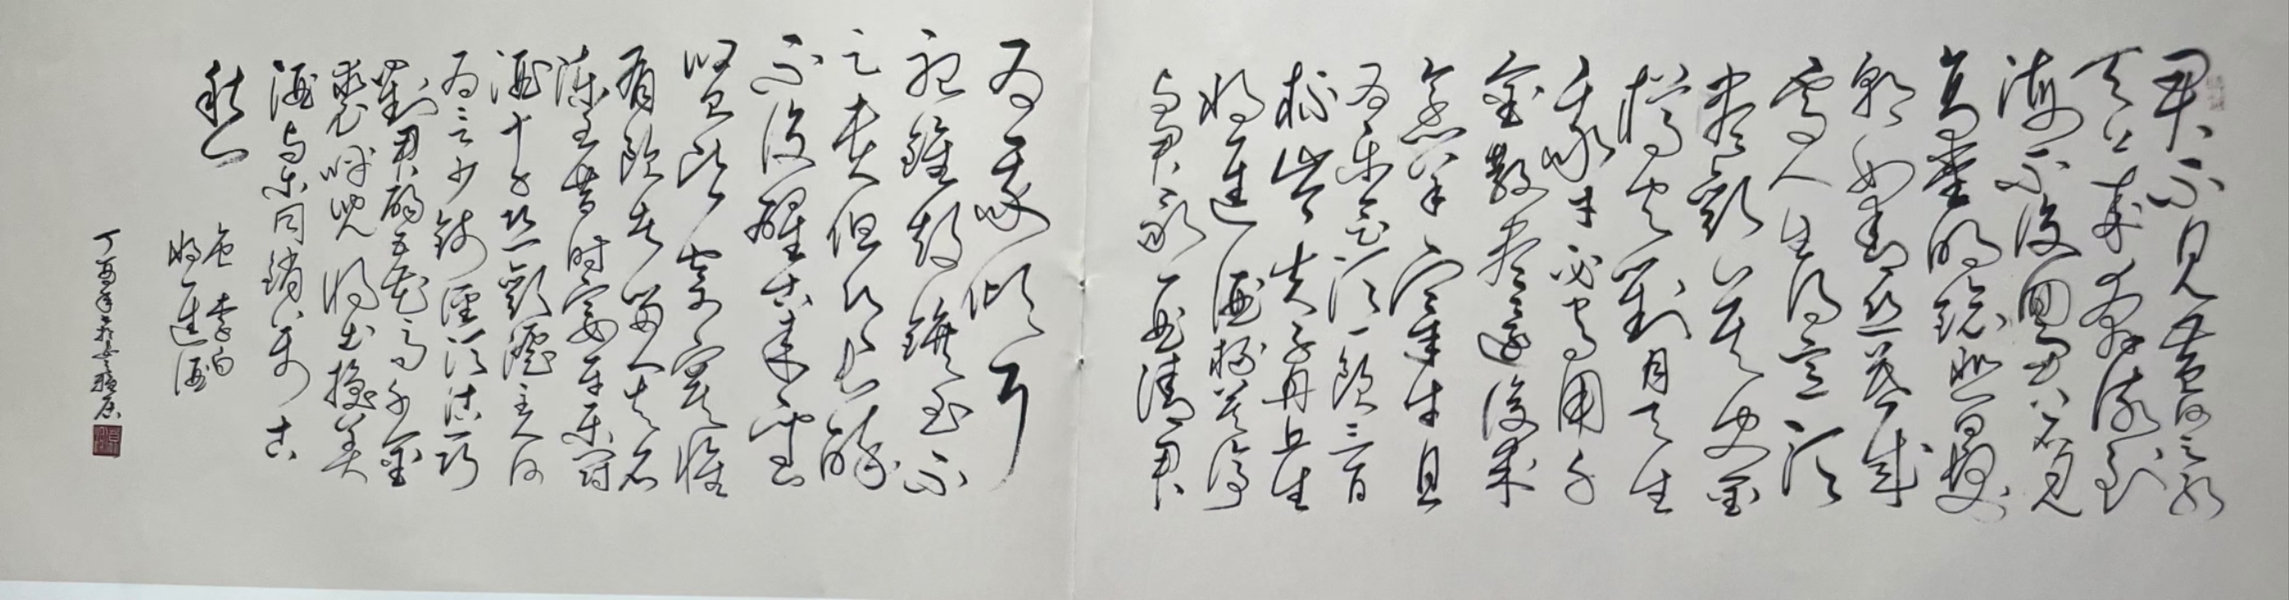 君不見黄河之水
天上来奔流到
海不復回君不見
高堂明镜悲白髮
朝如青丝暮成
雪人生得意须
尽歡莫使金
樽空對月天生
我材必有用千
金散尽還復来
烹羊宰牛且
为乐会须一饮三百
杯岑夫子丹丘生
将进酒杯莫停
与君歌一曲请君
为我倾耳
聽鐘鼓饌玉不
足贵但願长醉
不復醒古来聖
賢皆寂寞惟
有饮者留其名
陈王昔时宴平乐斗
酒十千恣歡谑主人何
为言少钱径须沽取
對君酌五花马千金
裘呼兒将出换美
酒与尔同销万古
愁
李白
将进酒